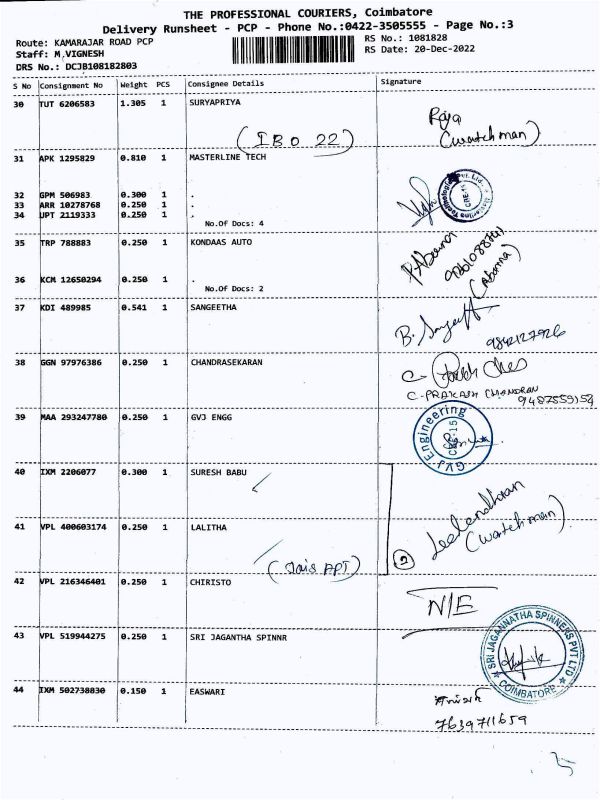 THE PROFESSIONAL COURIERS, Coimbatore
Delivery Runsheet - PCP - Phone No.:0422-3505555 - Page No.:3
Route: KAMARAJAR ROAD PCP
RS No.: 1081828
Staff: M,VIGNESH
RS Date: 20-Dec-2022
DRS No.: DCJB108182803
S No Consignment No Weight PCS Consignee Details Signature
30 TUT 6206583 1.305 1 SURYAPRIYA
Raja
(IBO 22) (watchman)
31 APK 1295829 0.810 1 MASTERLINE TECH
32 GPM 506983 0.300 1 .
33 ARR 10278768 0.250 1 .
34 UPT 2119333 0.250 1 .
No.Of Docs: 4
35 TRP 788883 0.250 1 KONDAAS AUTO
36 KCM 12650294 0.250 1 .
No.Of Docs: 2
37 KDI 489985 0.541 1 SANGEETHA
9842127926
38 GGN 97976386 0.250 1 CHANDRASEKARAN
C-PRAKASH CHANDRAN
9487559159
39 MAA 293247780 0.250 1 GVJ ENGG
GVJ Engineering
CBE-15
40 IXM 2206077 0.300 1 SURESH BABU
Leelandharan
41 VPL 400603174 0.250 1 LALITHA
(watchman)
(Jais APT) 2
42 VPL 216346401 0.250 1 CHIRISTO
N/E
43 VPL 519944275 0.250 1 SRI JAGANTHA SPINNR
SRI JAGANNATHA SPINNERS PVT LTD
COIMBATORE
44 IXM 502738830 0.150 1 EASWARI
7639711659